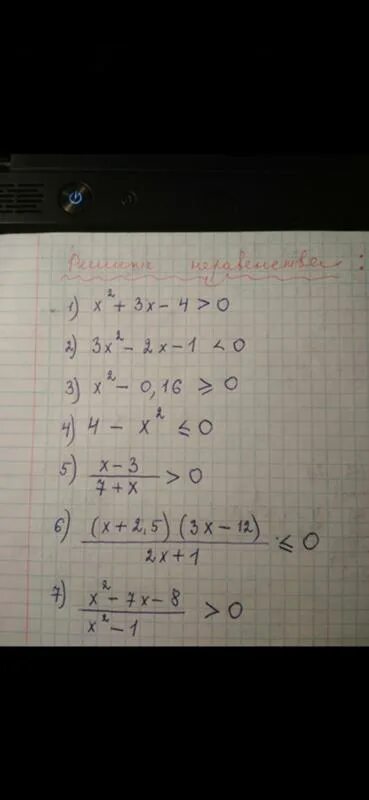 Решить неравенства:
1) x² + 3x - 4 > 0
2) 3x² - 2x - 1 < 0
3) x² - 0,16 ≥ 0
4) 4 - x² ≤ 0
5) (x - 3)/(7 + x) > 0
6) ((x + 2,5)(3x - 12))/(2x + 1) ≤ 0
7) (x² - 7x - 8)/(x² - 1) > 0